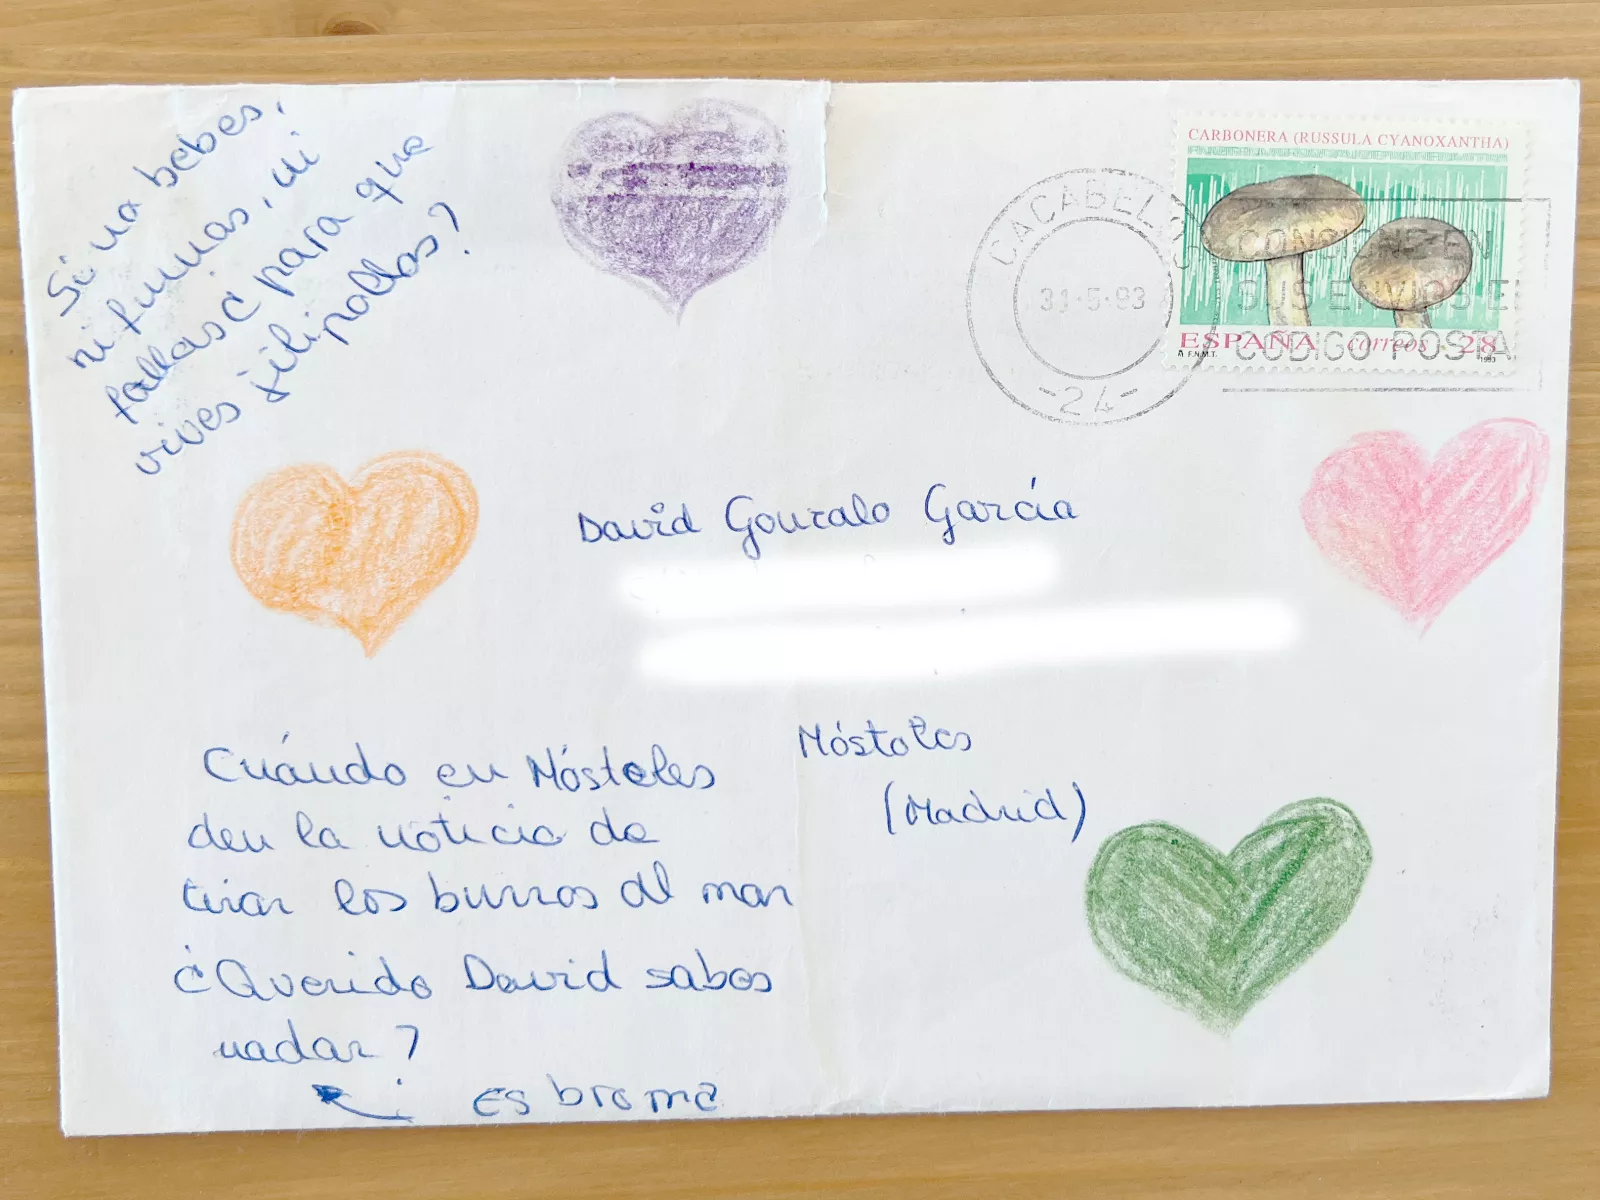 Si no bebes,
ni fumas, ni
follas ¿para que
vives jilipollas?
CARBONERA (RUSSULA CYANOXANTHA)
CACABELOS
31-5-93
-24-
CONSIGNE EN
SUS ENVIOS EL
CODIGO POSTAL
ESPAÑA correos 28
F.N.M.T. 1993
David Gonzalo García
Móstoles
(Madrid)
Cuándo en Móstoles
den la noticia de
tirar los burros al mar
¿Querido David sabes
nadar?
Es broma